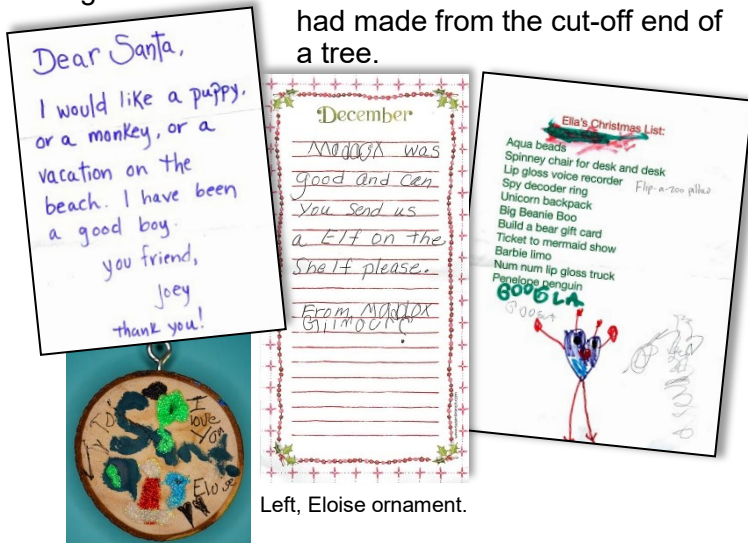 had made from the cut-off end of
a tree.
Dear Santa,
I would like a puppy,
or a monkey, or a
vacation on the
beach. I have been
a good boy.
you friend,
Joey
thank you!
December
Maddox was
good and can
you send us
a Elf on the
Shelf please.
From, Maddox
Gilmour
Ella's Christmas List:
Aqua beads
Spinney chair for desk and desk
Lip gloss voice recorder
Flip-a-zoo pillow
Spy decoder ring
Unicorn backpack
Big Beanie Boo
Build a bear gift card
Ticket to mermaid show
Barbie limo
Num num lip gloss truck
Penelope penguin
GOOGLA
I
love
You
Eloise
Left, Eloise ornament.